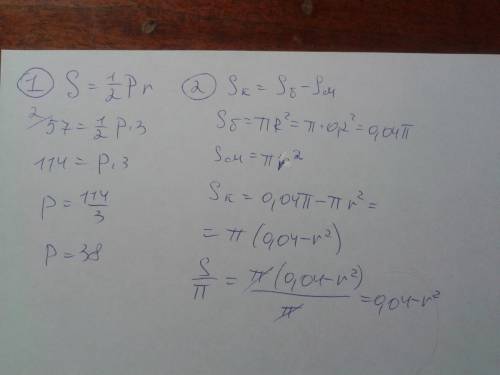 1 S = 1/2 P r
2/ 57 = 1/2 P · 3
114 = P · 3
P = 114/3
P = 38
2 Sк = Sб − Sм
Sб = πR² = π · 0,2² = 0,04π
Sм = πr²
Sк = 0,04π − πr² =
= π(0,04 − r²)
S/π = π(0,04 − r²)/π = 0,04 − r²